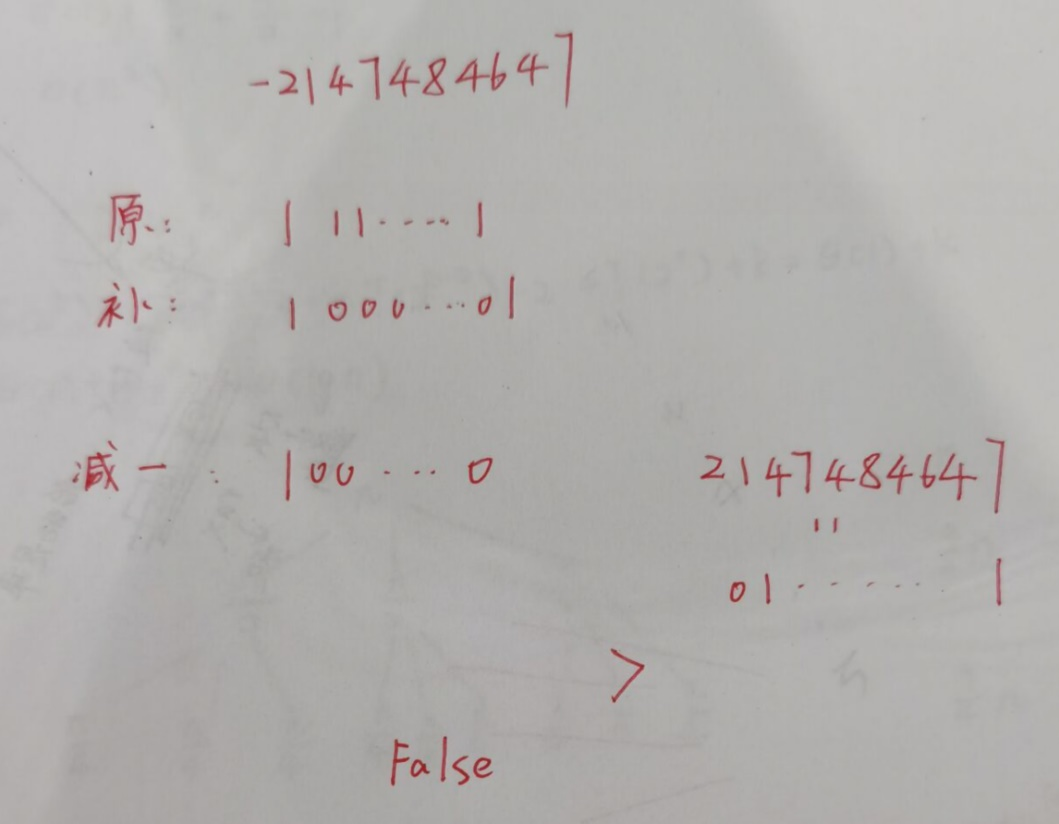 -2147484647
原: 1 11····· 1
补: 1 000···01
减一: 100 ··· 0 2147484647
11
01······ 1
>
False